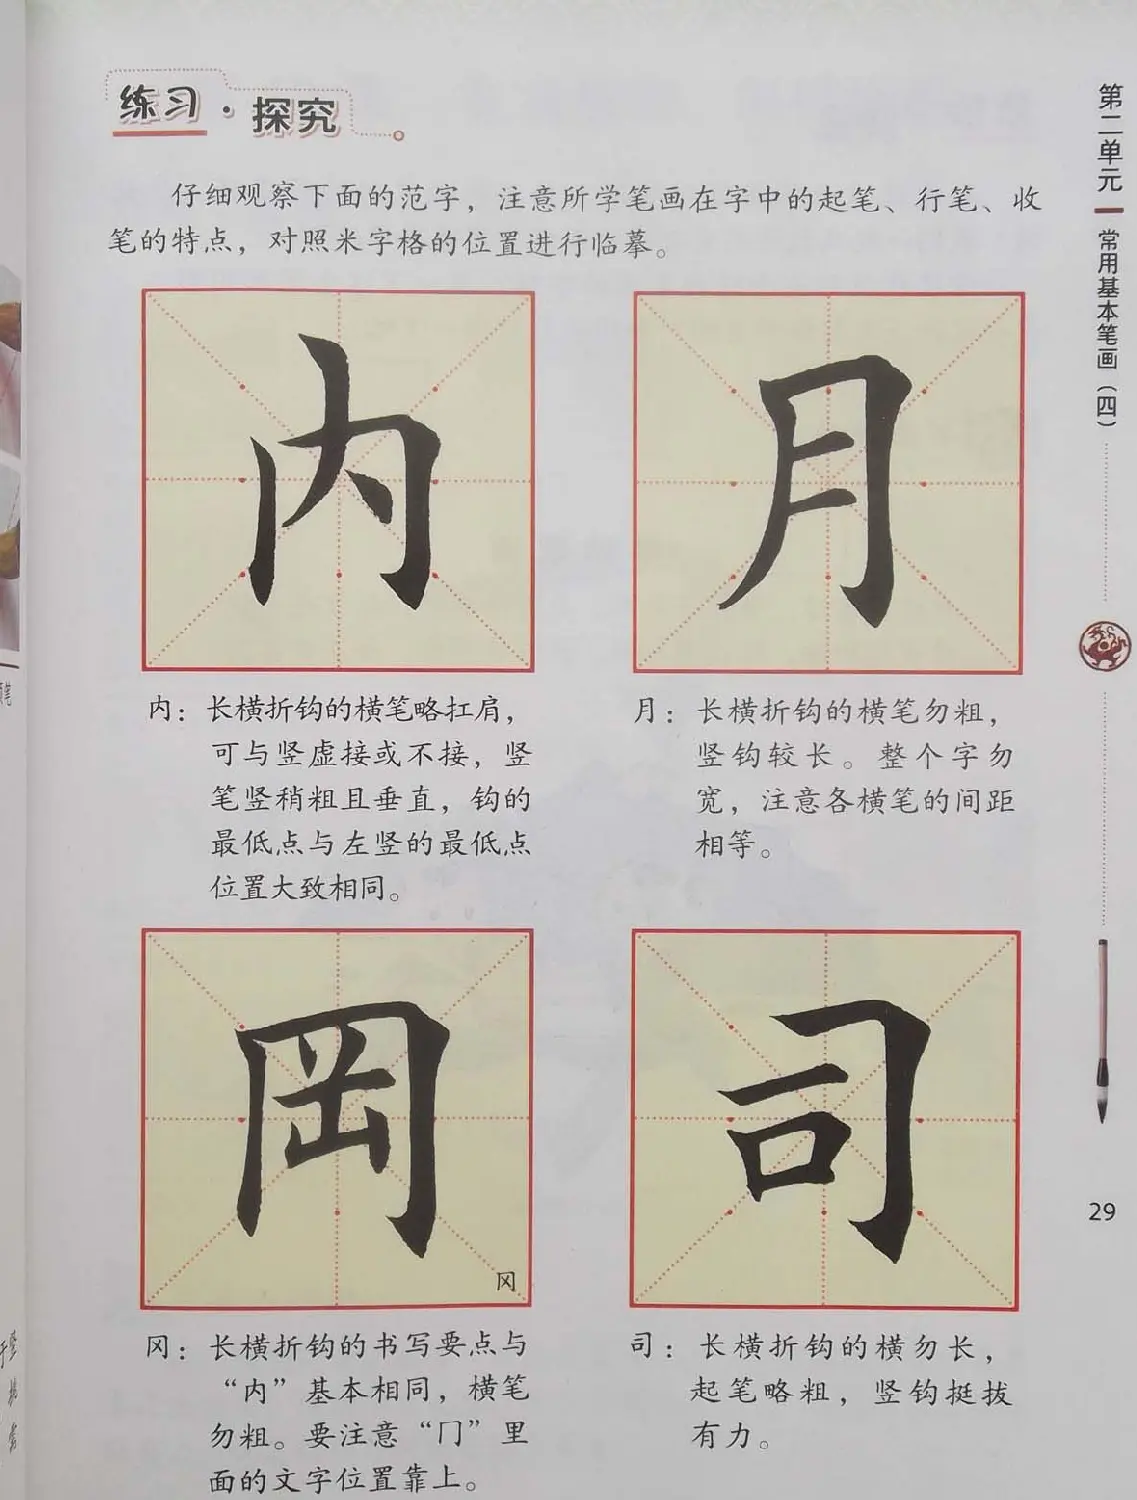 练习·探究
仔细观察下面的范字，注意所学笔画在字中的起笔、行笔、收
笔的特点，对照米字格的位置进行临摹。
内
月
内：长横折钩的横笔略扛肩，
可与竖虚接或不接，竖
笔竖稍粗且垂直，钩的
最低点与左竖的最低点
位置大致相同。
月：长横折钩的横笔勿粗，
竖钩较长。整个字勿
宽，注意各横笔的间距
相等。
岡
冈
司
冈：长横折钩的书写要点与
“内”基本相同，横笔
勿粗。要注意“冂”里
面的文字位置靠上。
司：长横折钩的横勿长，
起笔略粗，竖钩挺拔
有力。
第二单元
常用基本笔画（四）
29